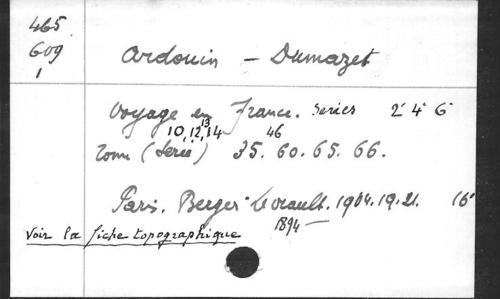 465
609
1
Ardouin - Dumazet
Voyage en France. Series 2e 4e 6
10, 12, 13, 14 46
Tome (Serie) 35. 60. 65. 66.
Paris. Berger-Levrault. 1904. 19.21. 16°
1894 —
Voir la fiche topographique